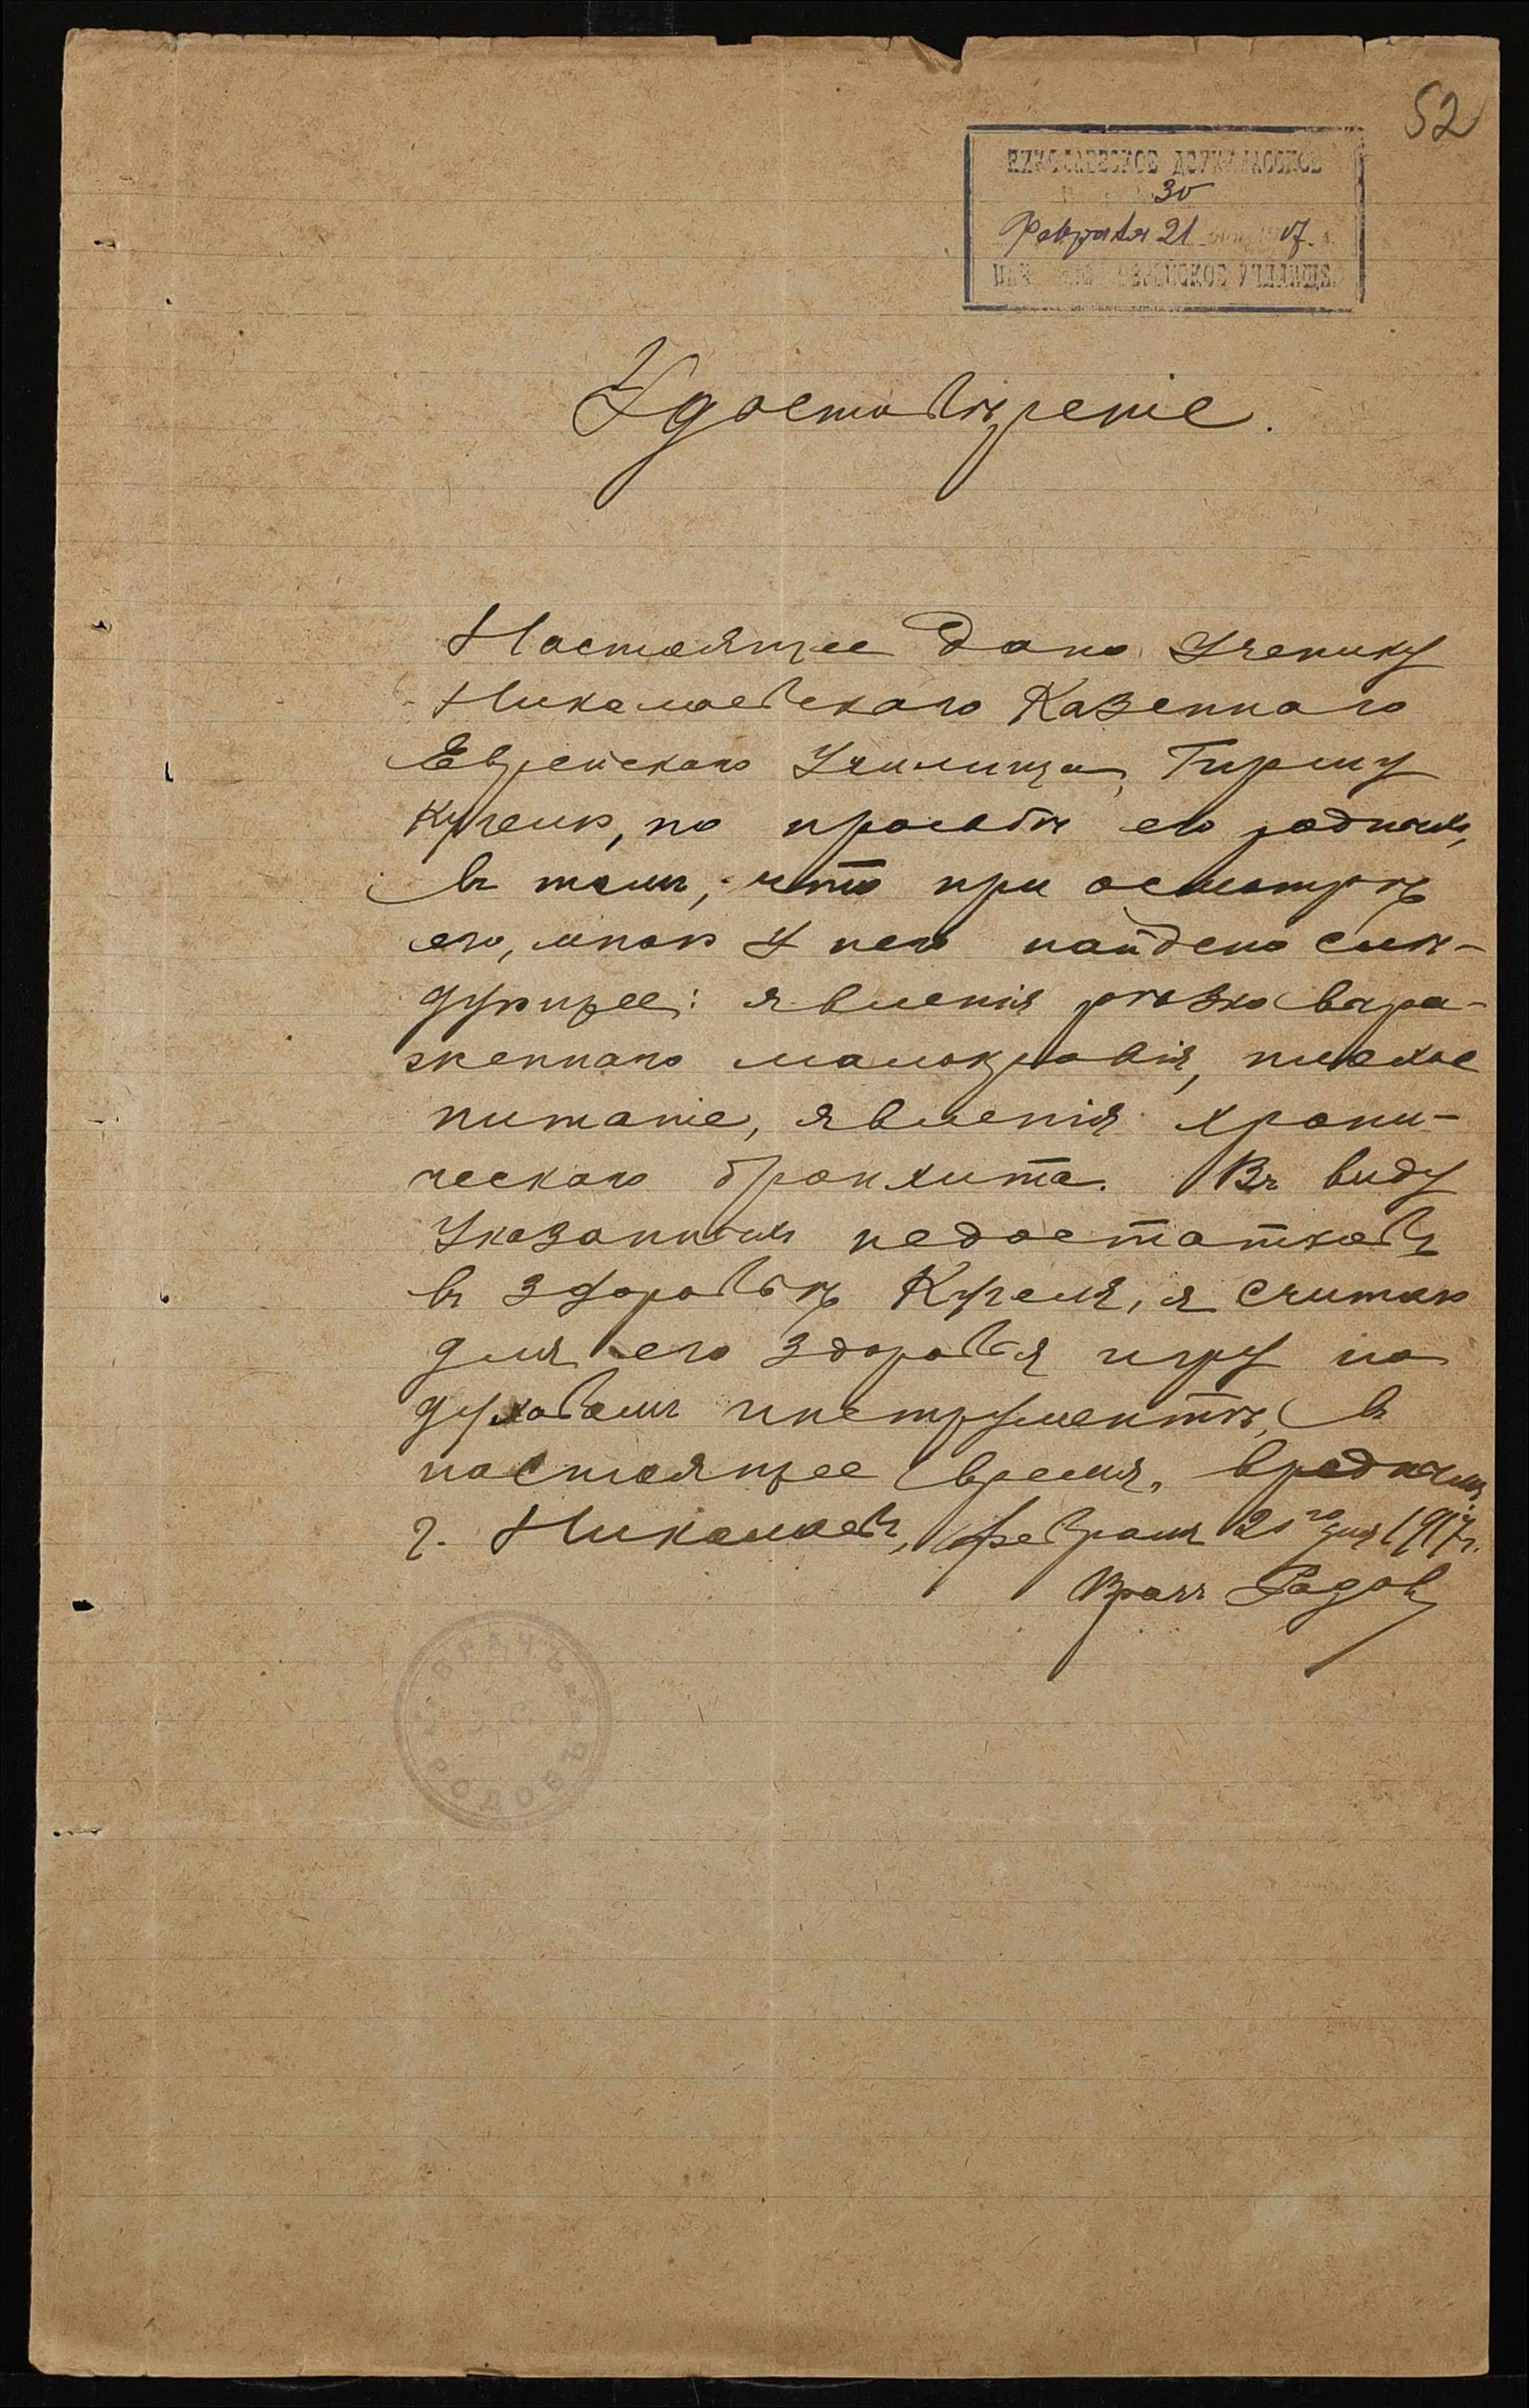 52
НИКОЛАЕВСКОЕ ДВУХКЛАССНОЕ
30
Февраля 21 17
ЕВРЕЙСКОЕ УЧИЛИЩЕ
Удостовѣреніе.
Настоящее дано ученику
Николаевскаго Казеннаго
Еврейскаго Училища, Гиршу
Кугель, по просьбѣ его родныхъ,
въ томъ, что при осмотрѣ
его, мною у него найдено слѣ-
дующее: явленія рѣзко выра-
женнаго малокровія, плохое
питаніе, явленія хрони-
ческаго бронхита. Въ виду
указанныхъ недостатковъ
въ здоровьѣ Кугеля, я считаю
для его здоровья игру на
духовомъ инструментѣ, въ
настоящее время, вреднымъ.
г. Николаевъ, февраля 20го дня 1917 г.
Врачъ Радовъ
ВРАЧЪ
РОДОВЪ